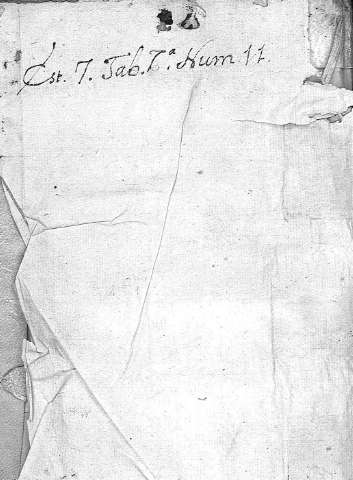 Est. 7. Tab. 7.ª Num 11.